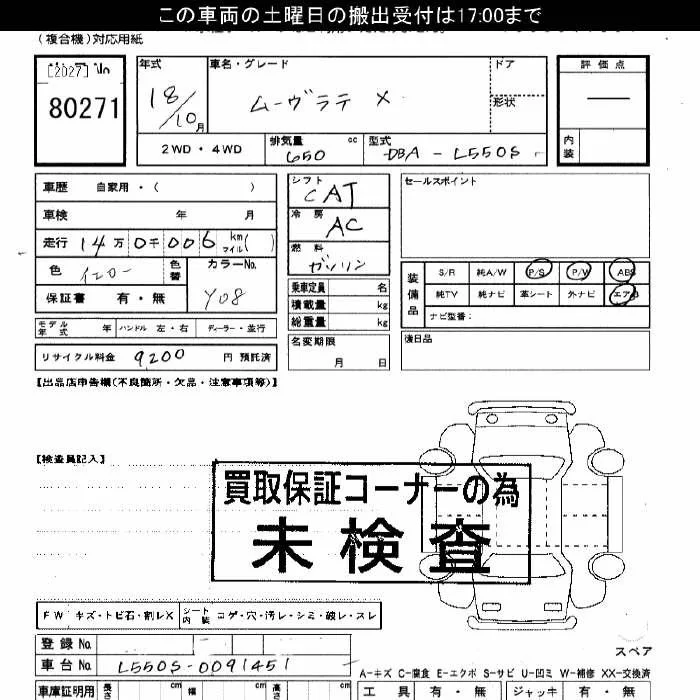 この車両の土曜日の搬出受付は17:00まで
(複合機)対応用紙
[2027] No
80271
年式
18/10月
車名・グレード
ムーヴラテ X
ドア
形状
評価点
内装
2WD・4WD
排気量 650 cc
型式 DBA-L550S
車歴 自家用・( )
車検 年 月
走行 14万0千006 km マイル( )
色 イエロー 色替
カラーNo. Y08
保証書 有・無
シフト CAT
冷房 AC
燃料 ガソリン
乗車定員 名
積載量 kg
総重量 kg
名変期限 月 日
セールスポイント
装備品
S/R 純A/W P/S P/W ABS
純TV 純ナビ 革シート 外ナビ エアB
ナビ型番:
後日品
モデル年式 年 ハンドル 左・右 ディーラー・並行
リサイクル料金 9200 円 預託済
【出品店申告欄(不良箇所・欠品・注意事項等)】
【検査員記入】
買取保証コーナーの為
未検査
FW キズ・トビ石・割レX シート内装 コゲ・穴・汚レ・シミ・破レ・スレ
登録No.
車台No. L550S-0091451
スペア
A-キズ C-腐食 E-エクボ S-サビ U-凹ミ W-補修 XX-交換済
車庫証明用 長さ cm 幅 cm 高さ cm
工具 有・無 ジャッキ 有・無